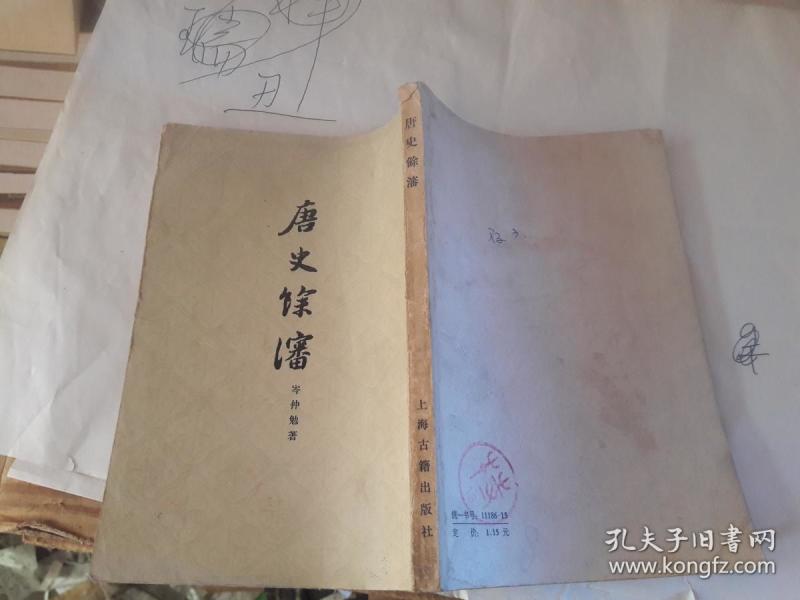 唐史餘瀋
岑仲勉著
唐史餘瀋
上海古籍出版社
统一书号：11186·15
定 价：1.15 元
孔夫子旧书网
www.kongfz.com